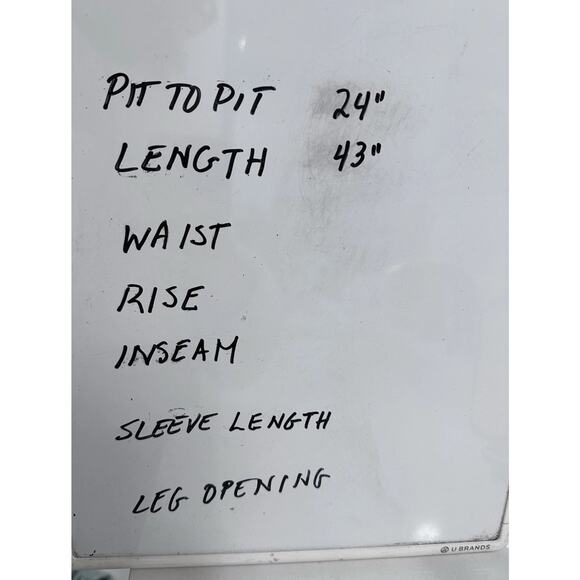 PIT TO PIT 24"
LENGTH 43"
WAIST
RISE
INSEAM
SLEEVE LENGTH
LEG OPENING
U BRANDS